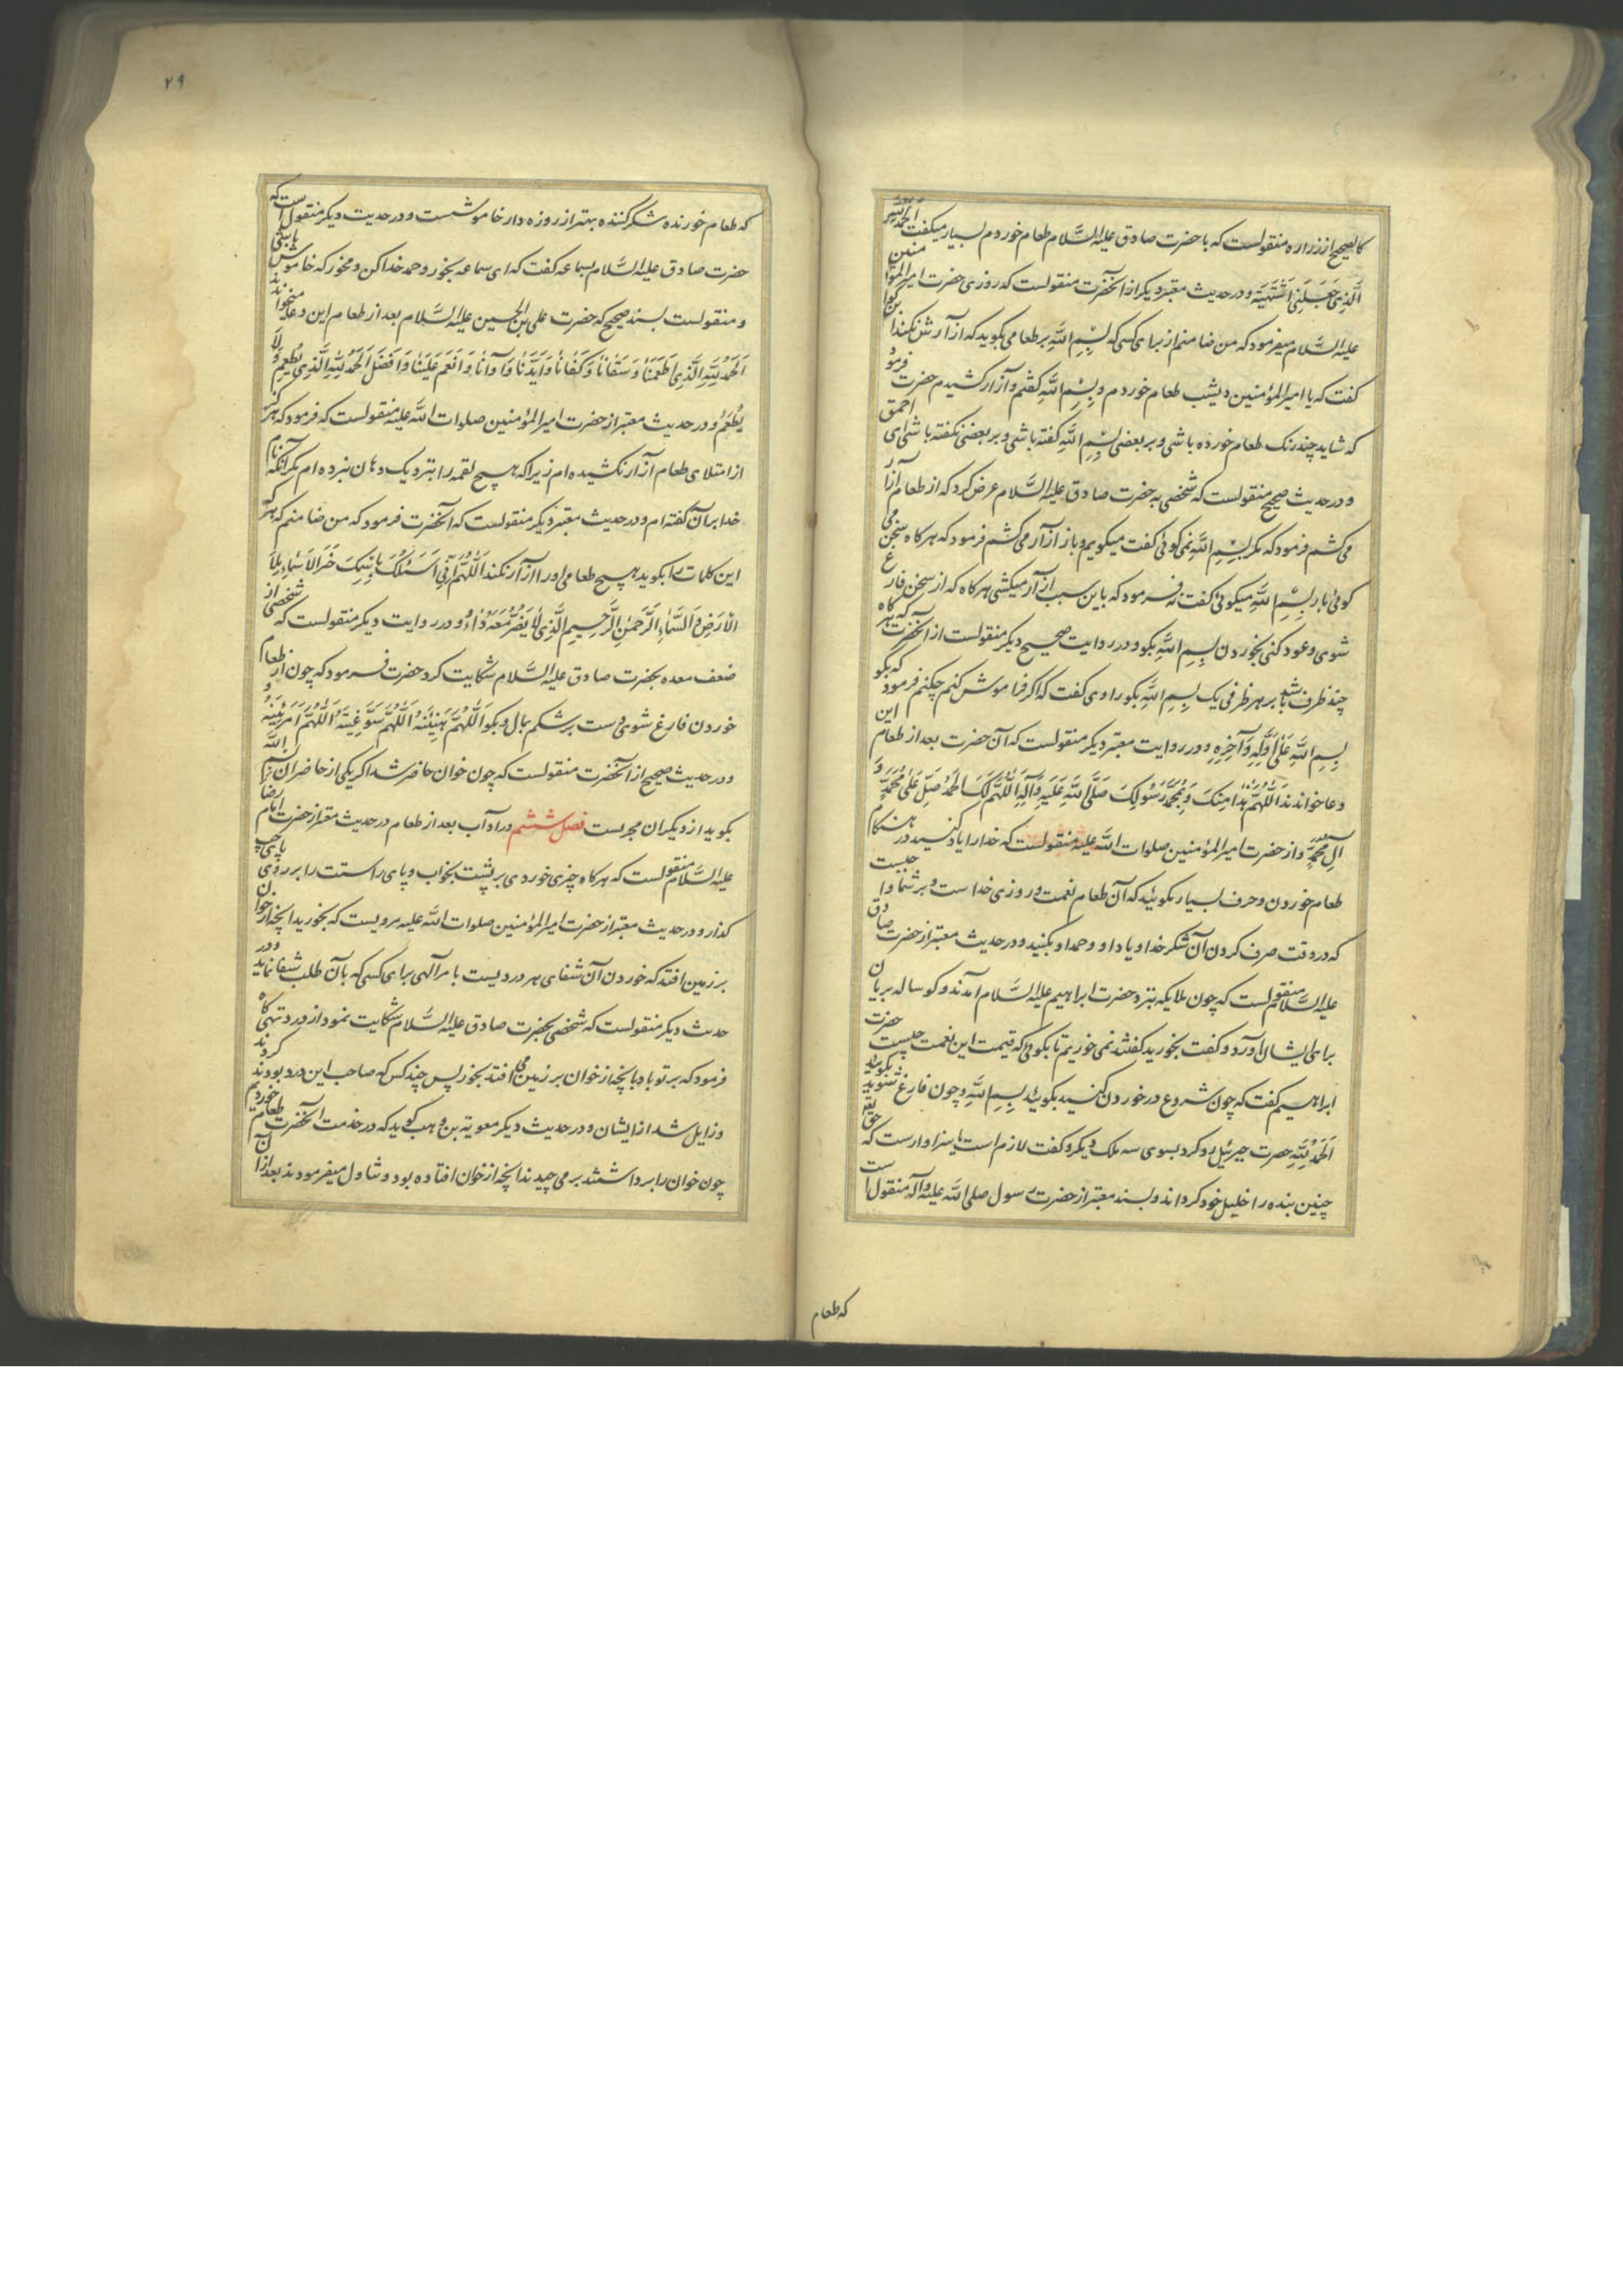 کالصحیح از زراره منقولست که با حضرت صادق علیه السَّلام طعام خوردم بسیار میکفت اَلحَمدُ لِلّهِ
الَّذِی جَعَلَنِی اَشتَهِیهِ و در حدیث معتبر دیکر از آنحضرت منقولست که روزی حضرت امیر المؤمنین
علیه السَّلام میفرمود که من ضامنم از برای کسی که بِسمِ اللّهِ بر طعامی بکوید که از آن آزارش نکند ابن کوا
کفت که یا امیر المؤمنین دیشب طعام خوردم و بِسمِ اللّهِ کفتم و آزار کشیدم حضرت فرمود
که شاید چند رنک طعام خورده باشی و بر بعضی بِسمِ اللّهِ کفته باشی و بر بعضی نکفته باشی ای احمق
و در حدیث صحیح منقولست که شخصی به حضرت صادق علیه السَّلام عرض کرد که از طعام آزار
می کشم فرمود که مکر بِسمِ اللّهِ نمی کوئی کفت میکویم و باز آزار می کشم فرمود که هر کاه سخن می
کوئی باز بِسمِ اللّهِ میکوئی کفت نه فرمود که باین سبب آزار میکشی هر کاه که از سخن فارغ
شوی و عود کنی بخوردن بِسمِ اللّهِ بکو و در روایت صحیح دیکر منقولست از آنحضرت که هر کاه
چند ظرف باشد بر هر ظرفی یک بِسمِ اللّهِ بکو راوی کفت که اکر فراموش کنم چکنم فرمود که بکو
بِسمِ اللّهِ عَلی اَوَّلِهِ وَ آخِرِهِ و در روایت معتبر دیکر منقولست که آن حضرت بعد از طعام این
دعا خواندند اَللّهُمَّ هذا مِنکَ وَ بِمُحَمَّدٍ رَسُولِکَ صَلَّی اللّهُ عَلَیهِ وَ آلِهِ اَللّهُمَّ لَکَ الحَمدُ صَلِّ عَلی مُحَمَّدٍ وَ
آلِ مُحَمَّدٍ و از حضرت امیر المؤمنین صلوات اللّه علیه منقولست که خدا را یاد کنید در هنکام
طعام خوردن و حرف بسیار مکوئید که آن طعام نعمت و روزی خداست و بر شما واجبست
که در وقت صرف کردن آن شکر خدا و یاد او و حمد او بکنید و در حدیث معتبر از حضرت صادق
علیه السَّلام منقولست که چون ملایکه بنزد حضرت ابراهیم علیه السَّلام آمدند و کوساله بریان
برای ایشان آورد و کفت بخورید کفتند نمی خوریم تا بکوئی که قیمت این نعمت چیست حضرت
ابراهیم کفت که چون شروع در خوردن کنید بکوئید بِسمِ اللّهِ و چون فارغ شوید بکوئید
اَلحَمدُ لِلّهِ حضرت جبرئیل رو کرد بسوی سه ملک دیکر و کفت لازم است یا سزاوارست که حق تع
چنین بنده را خلیل خود کرداند و بسند معتبر از حضرت رسول صلی اللّه علیه و آله منقول است
که طعام
۲۹
که طعام خورنده شکر کننده بهتر از روزه دار خاموشست و در حدیت دیکر منقول است که
حضرت صادق علیه السَّلام بسماعه کفت که ای سماعه بخور و حمد خدا کن و مخور که خاموش باشی
و منقولست بسند صحیح که حضرت علی بن الحسین علیه السَّلام بعد از طعام این دعا میخواندند
اَلحَمدُ لِلّهِ الَّذِی اَطعَمَنا وَ سَقانا وَ کَفانا وَ اَیَّدَنا وَ آوانا وَ اَنعَمَ عَلَینا وَ اَفضَلَ اَلحَمدُ لِلّهِ الَّذِی یُطعِمُ وَ لا
یُطعَمُ و در حدیث معتبر از حضرت امیر المؤمنین صلوات اللّه علیه منقولست که فرمود که هرکز
از امتلای طعام آزار نکشیده ام زیرا که هیچ لقمه را بنزدیک دهان نبرده ام مکر آنکه نام
خدا بر آن کفته ام و در حدیث معتبر دیکر منقولست که آنحضرت فرمود که من ضامنم که هر که
این کلمات را بکوید هیچ طعامی او را آزار نکند اَللّهُمَّ اِنِّی اَسئَلُکَ بِاسمِکَ خَیرِ الاَسماءِ مِلاَ
الاَرضِ وَ السَّماءِ الرَّحمنِ الرَّحیمِ الَّذِی لا یَضُرُّ مَعَهُ داءٌ و در روایت دیکر منقولست که شخصی از
ضعف معده بحضرت صادق علیه السَّلام شکایت کرد حضرت فرمود که چون از طعام
خوردن فارغ شوی دست بر شکم بمال و بکو اَللّهُمَّ هَنِّئنِیهُ اَللّهُمَّ سَوِّغنِیهُ اَللّهُمَّ اَمرِئنِیهُ و
و در حدیث صحیح از آنحضرت منقولست که چون خوان حاضر شد اکر یکی از حاضران بسم اللّه
بکوید از دیکران مجریست فصل ششم در آداب بعد از طعام در حدیث معتبر از حضرت امام رضا
علیه السَّلام منقولست که هر کاه چیزی خوردی بر پشت بخواب و پای راست را بر روی پای چپ
کذار و در حدیث معتبر از حضرت امیر المؤمنین صلوات اللّه علیه مرویست که بخورید آنچه از خوان
بر زمین افتد که خوردن آن شفای هر دردیست بامر آلهی برای کسی که بآن طلب شفا نماید و در
حدیث دیکر منقولست که شخصی بحضرت صادق علیه السَّلام شکایت نمود از درد تهیکاه
فرمود که بر تو باد بآنچه از خوان بر زمین می افتد بخور پس چند کس که صاحب این درد بودند کردند
و زایل شد از ایشان و در حدیث دیکر معویة بن وهب کوید که در خدمت آنحضرت طعام خوردیم
چون خوان را برداشتند بر می چیدند آنچه از خوان افتاده بود و تناول میفرمودند بعد از آن